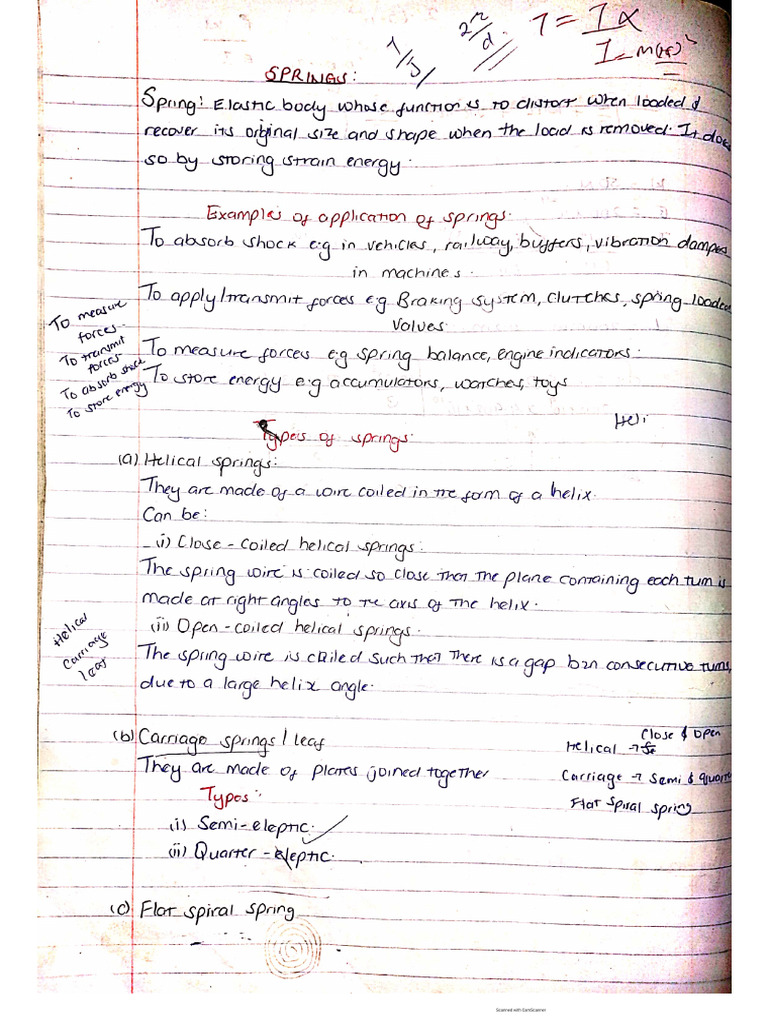 T/J/
2π/d
T = Iα
I = m(r)²
SPRINGS:
Spring: Elastic body whose function is to distort when loaded &
recover its original size and shape when the load is removed. It does
so by storing strain energy.
Examples of application of springs.
To absorb shock e.g in vehicles, railway, buffers, vibration dampes
in machines.
To apply/transmit forces e.g Braking system, Clutches, spring loaded
valves.
To measure forces e.g spring balance, engine indicators.
To store energy e.g accumulators, watches, toys
To measure
forces.
To transmit
forces
To absorb shock
To store energy
Heli
Types of springs.
(a) Helical springs:
They are made of a wire coiled in the form of a helix.
Can be:
(i) Close-coiled helical springs:
The spring wire is coiled so close that the plane containing each turn is
made at right angles to the axis of the helix.
(ii) Open-coiled helical springs.
The spring wire is coiled such that there is a gap btn consecutive turns,
due to a large helix angle.
Helical
Carriage
leaf
(b) Carriage springs / leaf
They are made of plates joined together
Types:
(i) Semi-eleptic.
(ii) Quarter-eleptic.
Close & Open
Helical →
Carriage → Semi & quarter
Flat spiral spring
(c) Flat spiral spring
Scanned with CamScanner